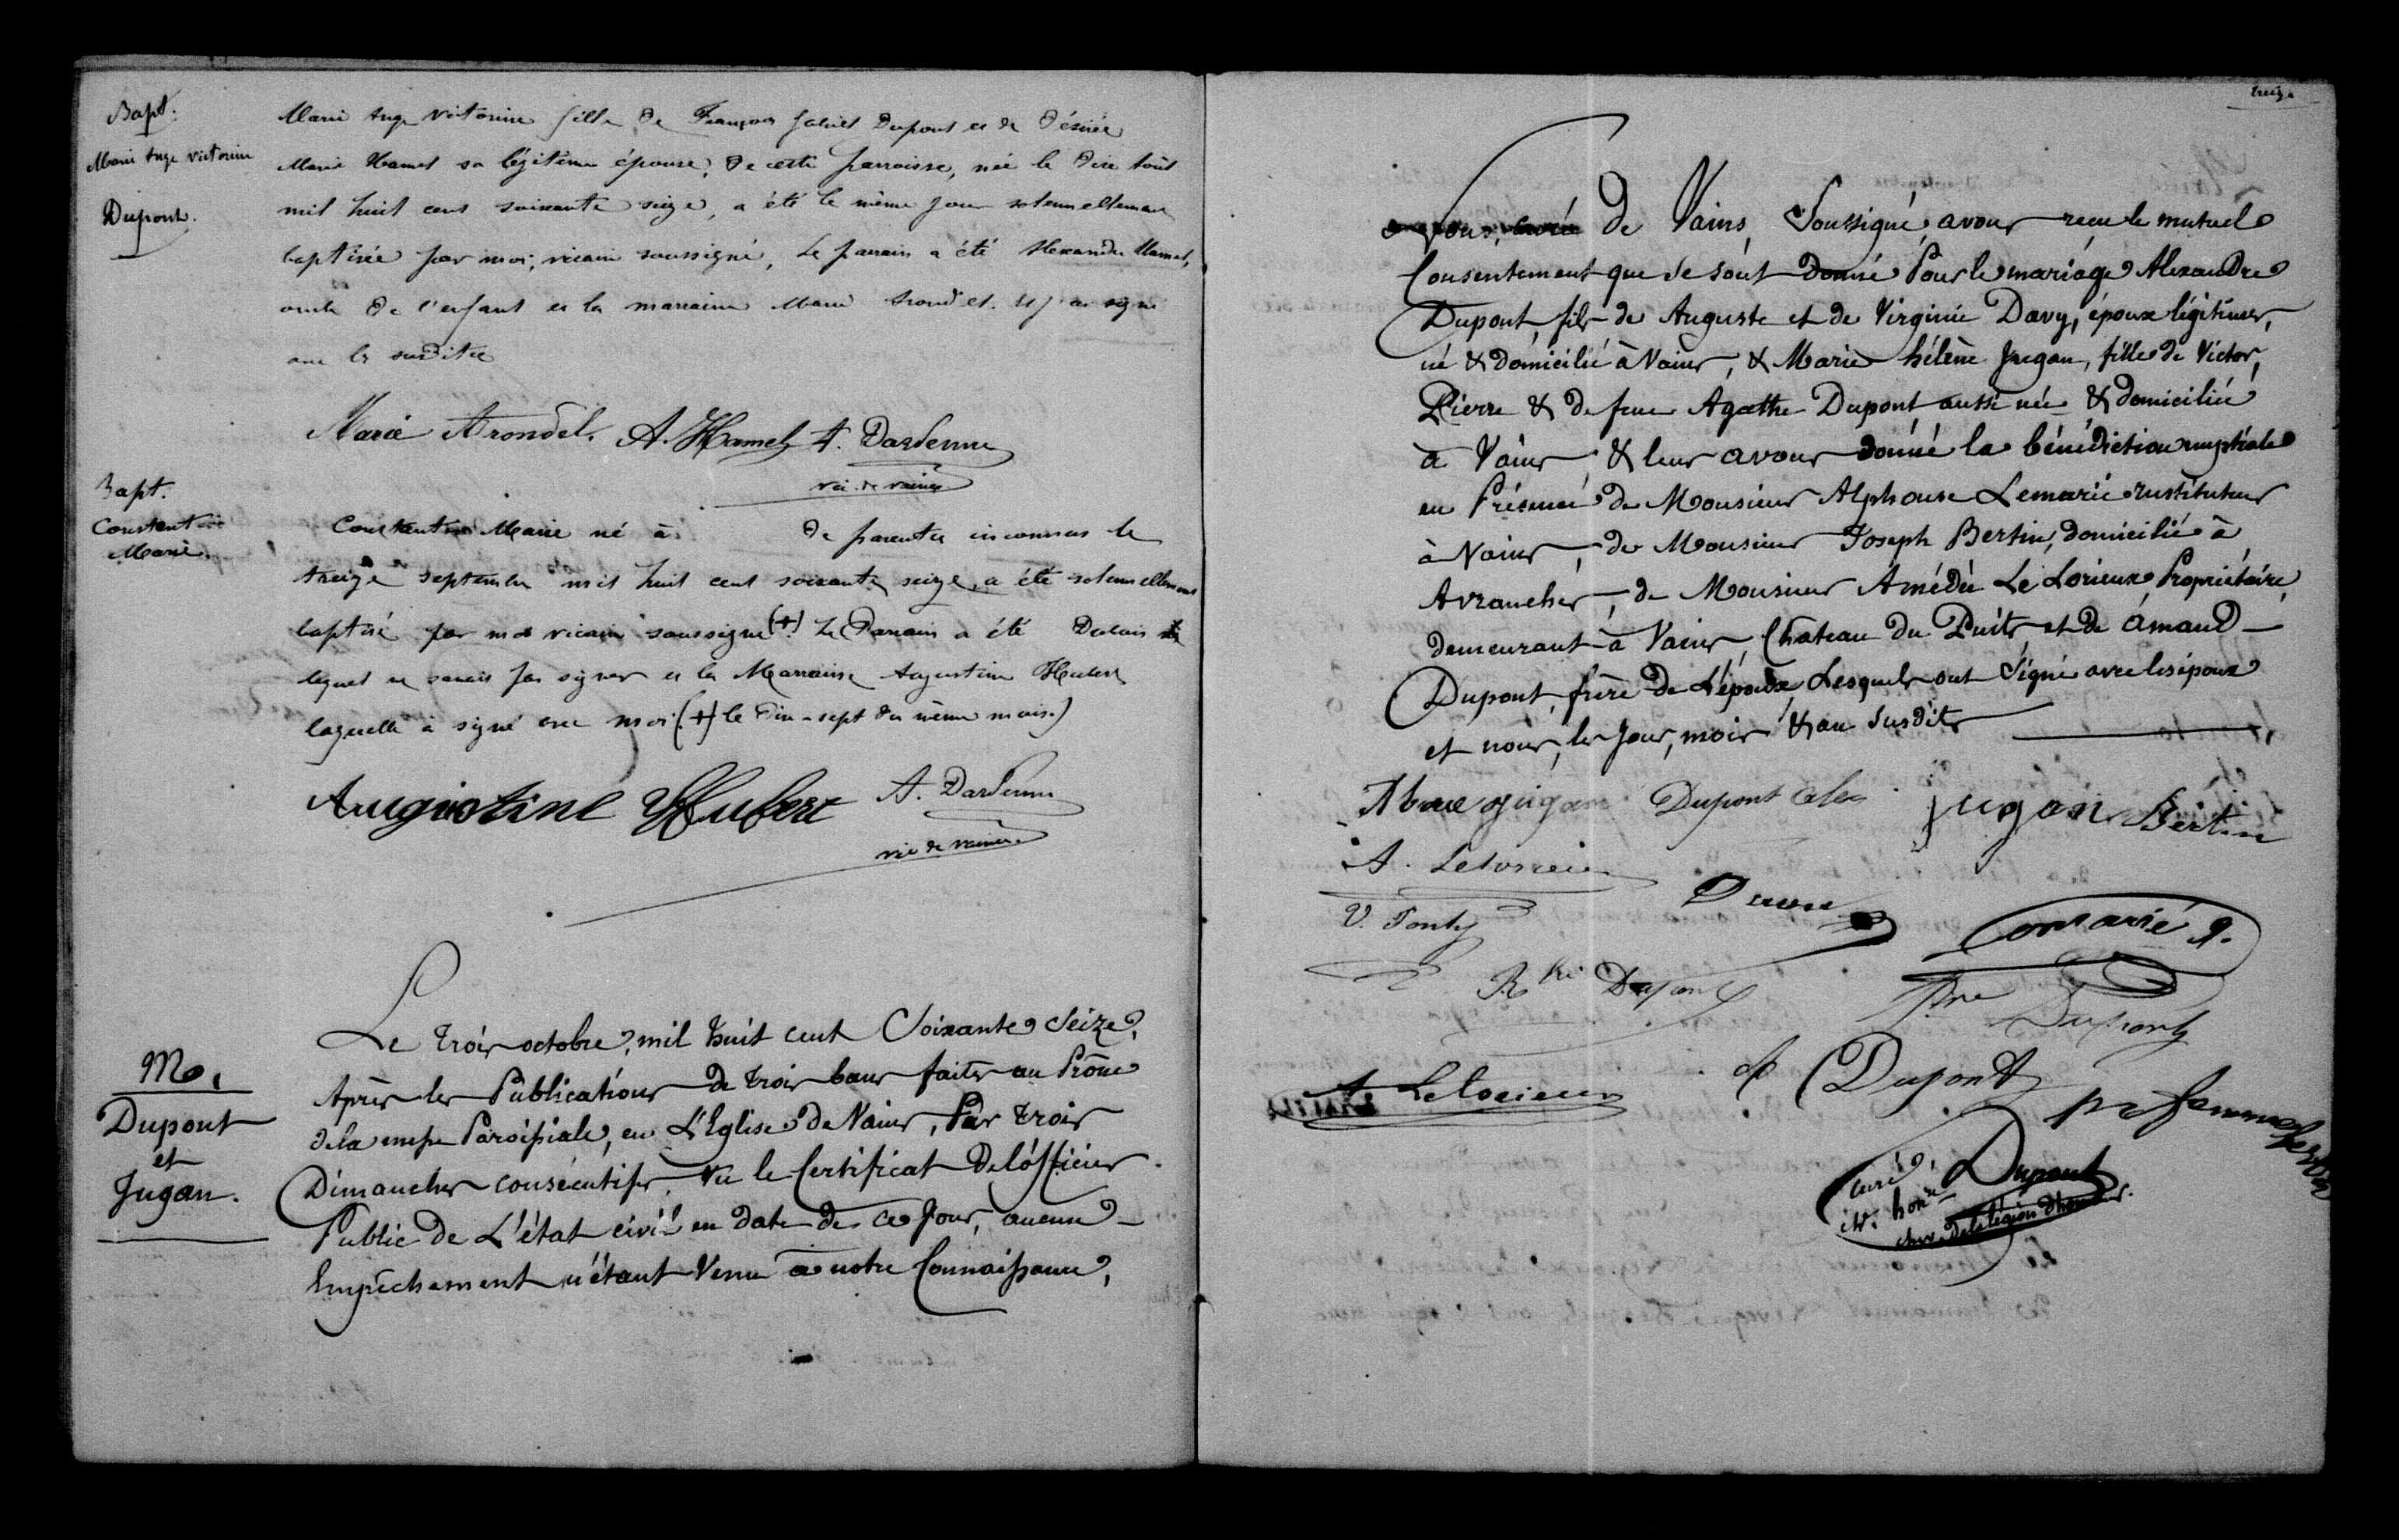 Bapt.
Marie Ange Victorine
Dupont.
Marie Ange Victorine fille de François Dupont et de Désirée
Marie Hamel sa légitime épouse, de cette parroisse, née le dix août
mil huit cent soixante seize, a été le même jour solennellement
baptisée par moi, vicaire soussigné, Le parrain a été Alexandre Hamel,
oncle de l'enfant et la marraine Marie Arondel. signé
avec les susdites
Marie Arondel. A. Hamel A. Dardenne
vic. de vains
Bapt.
Constantin
Marie.
Constantin Marie né à de parents inconnus le
treize septembre mil huit cent soixante seize, a été solennellement
baptisé par moi vicaire soussigné (+). Le Parrain a été
lequel ne savait pas signer et la Marraine Augustine Hubert
laquelle à signé avec moi (+) le dix-sept du même mois.)
Augustine Hubert A. Dardenne
vic de vains.
M.
Dupont
et
Jugan.
Le trois octobre, mil huit cent Soixante Seize,
Après les Publications de trois bans faites au Prône
de la messe Paroissiale, en L'Eglise de Vains, Par trois
Dimanches consécutifs, Vu le Certificat De l'officier
Public de L'état civil en date de ce Jour, aucun
Empêchement n'étant Venu à notre Connaissance,
treize
Nous, curé de Vains, Soussigné, avons recu le mutuel
Consentement que se sont donné Pour le mariage Alexandre
Dupont, fils de Auguste et de Virginie Davy, époux légitimes,
né & domicilié à Vains, & Marie hélène Jugan, fille de Victor,
Pierre & de feue Agathe Dupont aussi née & domiciliée
à Vains & leur avons donné la bénédiction nuptiale
en Présence de Monsieur Alphonse Lemarié instituteur
à Vains, de Monsieur Joseph Bertin, domicilié à
Avranches, de Monsieur Amédée Le Lorieux, Propriétaire,
demeurant à Vains, Château du Puits et de Amand
Dupont, frère de L'époux, Lesquels ont Signé avec les époux
et nous, les Jour, mois & an Susdits
jugan Dupont alex jugan Bertin
A. Lelorieux
Dupont
Dupont
A Lelorieux Dupont
curé Dupont
hon.
chev. de la légion d'honneur.